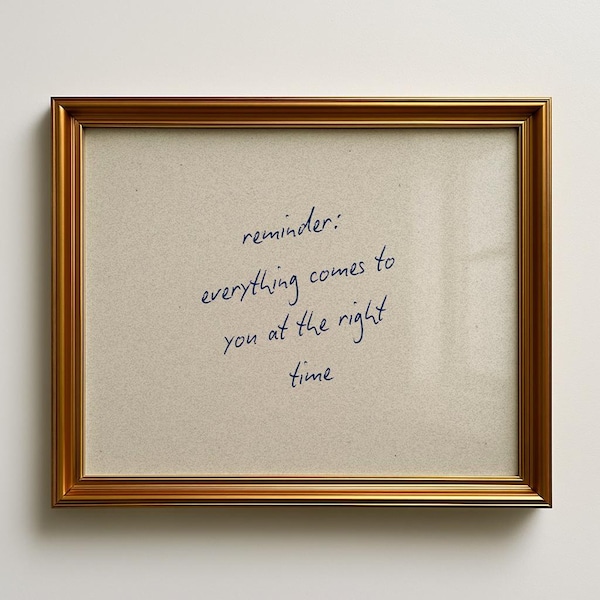 reminder:
everything comes to
you at the right
time